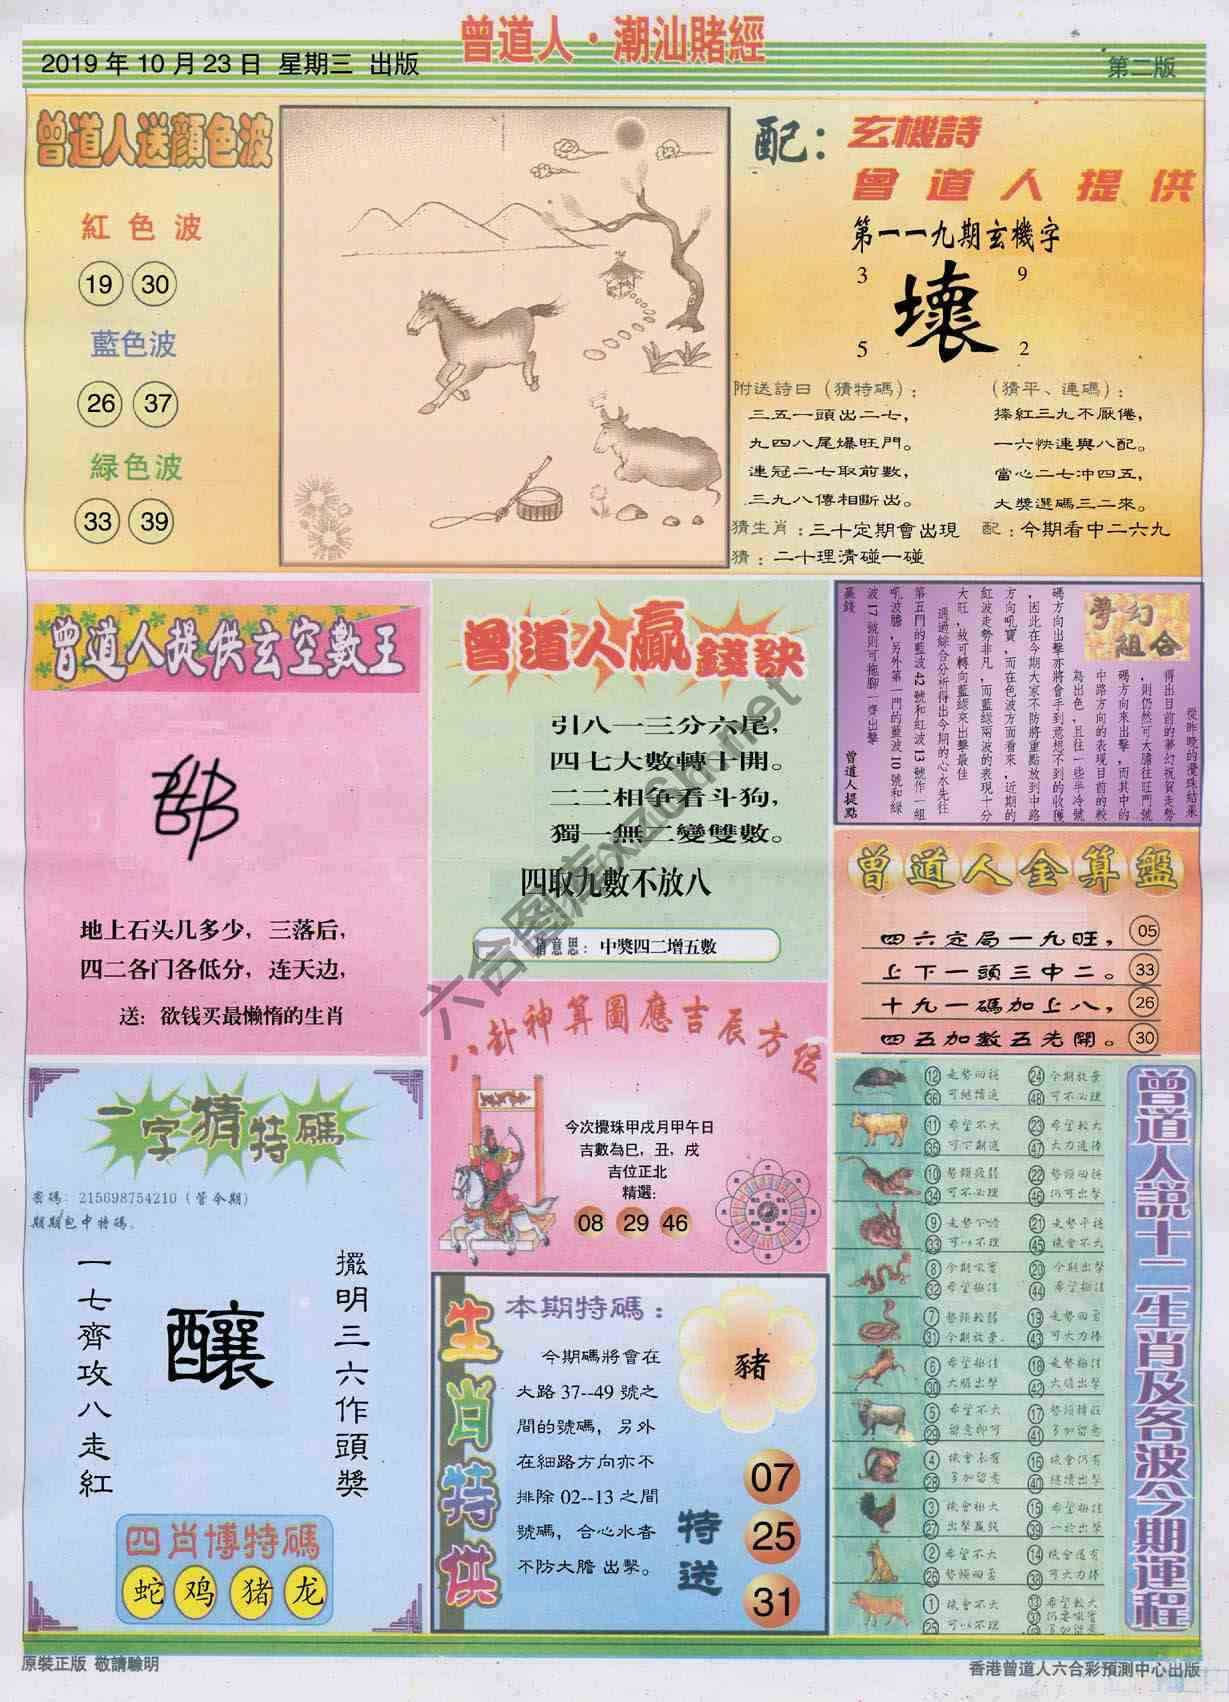 曾道人·潮汕賭經
2019年10月23日 星期三 出版
第二版
曾道人送顔色波
紅色波
19 30
藍色波
26 37
緑色波
33 39
配：玄機詩
曾道人提供
第一一九期玄機字
3 9
壞
5 2
附送詩曰（猜特碼）：
三五一頭出二七，
九四八尾爆旺門。
連冠二七取前數，
三九八傳相斷出。
（猜平、連碼）：
捧紅三九不厭倦，
一六快連與八配。
當心二七冲四五，
大獎選碼三二來。
猜生肖：三十定期會出現 配：今期看中二六九
猜：二十理清碰一碰
曾道人提供玄空數王
地上石头几多少，三落后，
四二各门各低分，连天边，
送：欲钱买最懒惰的生肖
曾道人贏錢訣
引八一三分六尾，
四七大數轉十開。
二二相争看斗狗，
獨一無二變雙數。
四取九數不放八
猜意思：中獎四二增五數
夢幻組合
從昨晚的攪珠結果
得出目前的夢幻祝賀走勢
，則仍然可大膽往旺門號
碼方向來出擊，而其中的
中路方向的表現目前的較
為出色，且往一些半冷號
碼方向出擊亦將會手到意想不到的收穫
，因此在今期大家不防將重點放到中路
方向吼寶，而在色波方面看來，近期的
紅波走勢非凡，而藍綠兩波的表現十分
大旺，故可轉向藍綠來出擊最佳
通過綜合分析得出今期的心水先往
第五門的藍波42號和紅波13號作一組
吼波膽，另外第一門的藍波10號和綠
波17號則可拖腳一齊出擊
贏錢
曾道人提點
曾道人金算盤
四六定局一九旺， 05
上下一頭三中二。 33
十九一碼加上八， 26
四五加數五先開。 30
八卦神算圖應吉辰方位
今次攪珠甲戌月甲午日
吉數為巳，丑，戌
吉位正北
精選：
08 29 46
一字猜特碼
密碼：215698754210（管今期）
期期包中特碼。
擺明三六作頭獎
釀
一七齊攻八走紅
四肖博特碼
蛇 鸡 猪 龙
生肖特供
本期特碼：
今期碼將會在
大路37--49號之
間的號碼，另外
在細路方向亦不
排除02--13之間
號碼，合心水者
不防大膽出擊。
豬
特送
07
25
31
曾道人説十二生肖及各波今期運程
12 走勢回穩 24 今期放棄
36 可繼續追 48 可不必理
11 希望不大 23 希望較大
35 可下期追 47 大力追捧
10 勢頭疲弱 22 勢頭回穩
34 可不必理 46 仍可出擊
9 走勢下滑 21 走勢平穩
33 可以不理 45 機會不大
8 今期吸寶 20 今期出擊
32 希望極佳 44 希望極佳
7 勢頭較弱 19 走勢回舌
31 今期放棄 43 可大力捧
6 希望極佳 18 走勢極佳
30 大膽出擊 42 大膽出擊
5 希望不大 17 勢頭轉旺
29 留意即可 41 多加留意
4 機會未有 16 機會仍有
28 多加留意 40 繼續出擊
3 機會極大 15 希望極佳
27 出擊贏錢 39 一於出擊
2 希望不大 14 機會還有
26 勢頭回舌 38 可大力捧
1 機會不大 13 希望較大
25 可以不理
原裝正版 敬請驗明
香港曾道人六合彩預測中心出版
六合图库